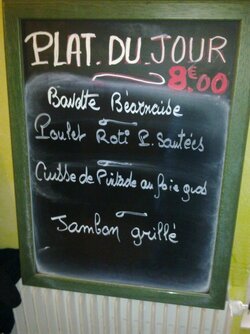 PLAT. DU. JOUR
8€00
Bavette Béarnaise
Poulet Roti P. Sautées
Cuisse de Pintade au foie gras
Jambon grillé